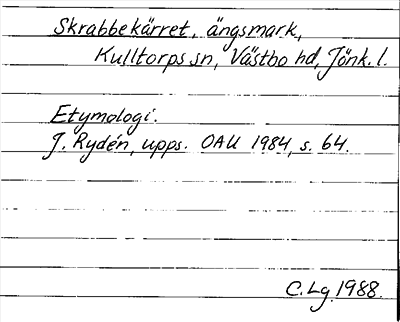 Skrabbekärret, ängsmark,
Kulltorps sn, Västbo hd, Jönk. l.
Etymologi.
J. Rydén, upps. OAU 1984, s. 64.
C. Lg. 1988.